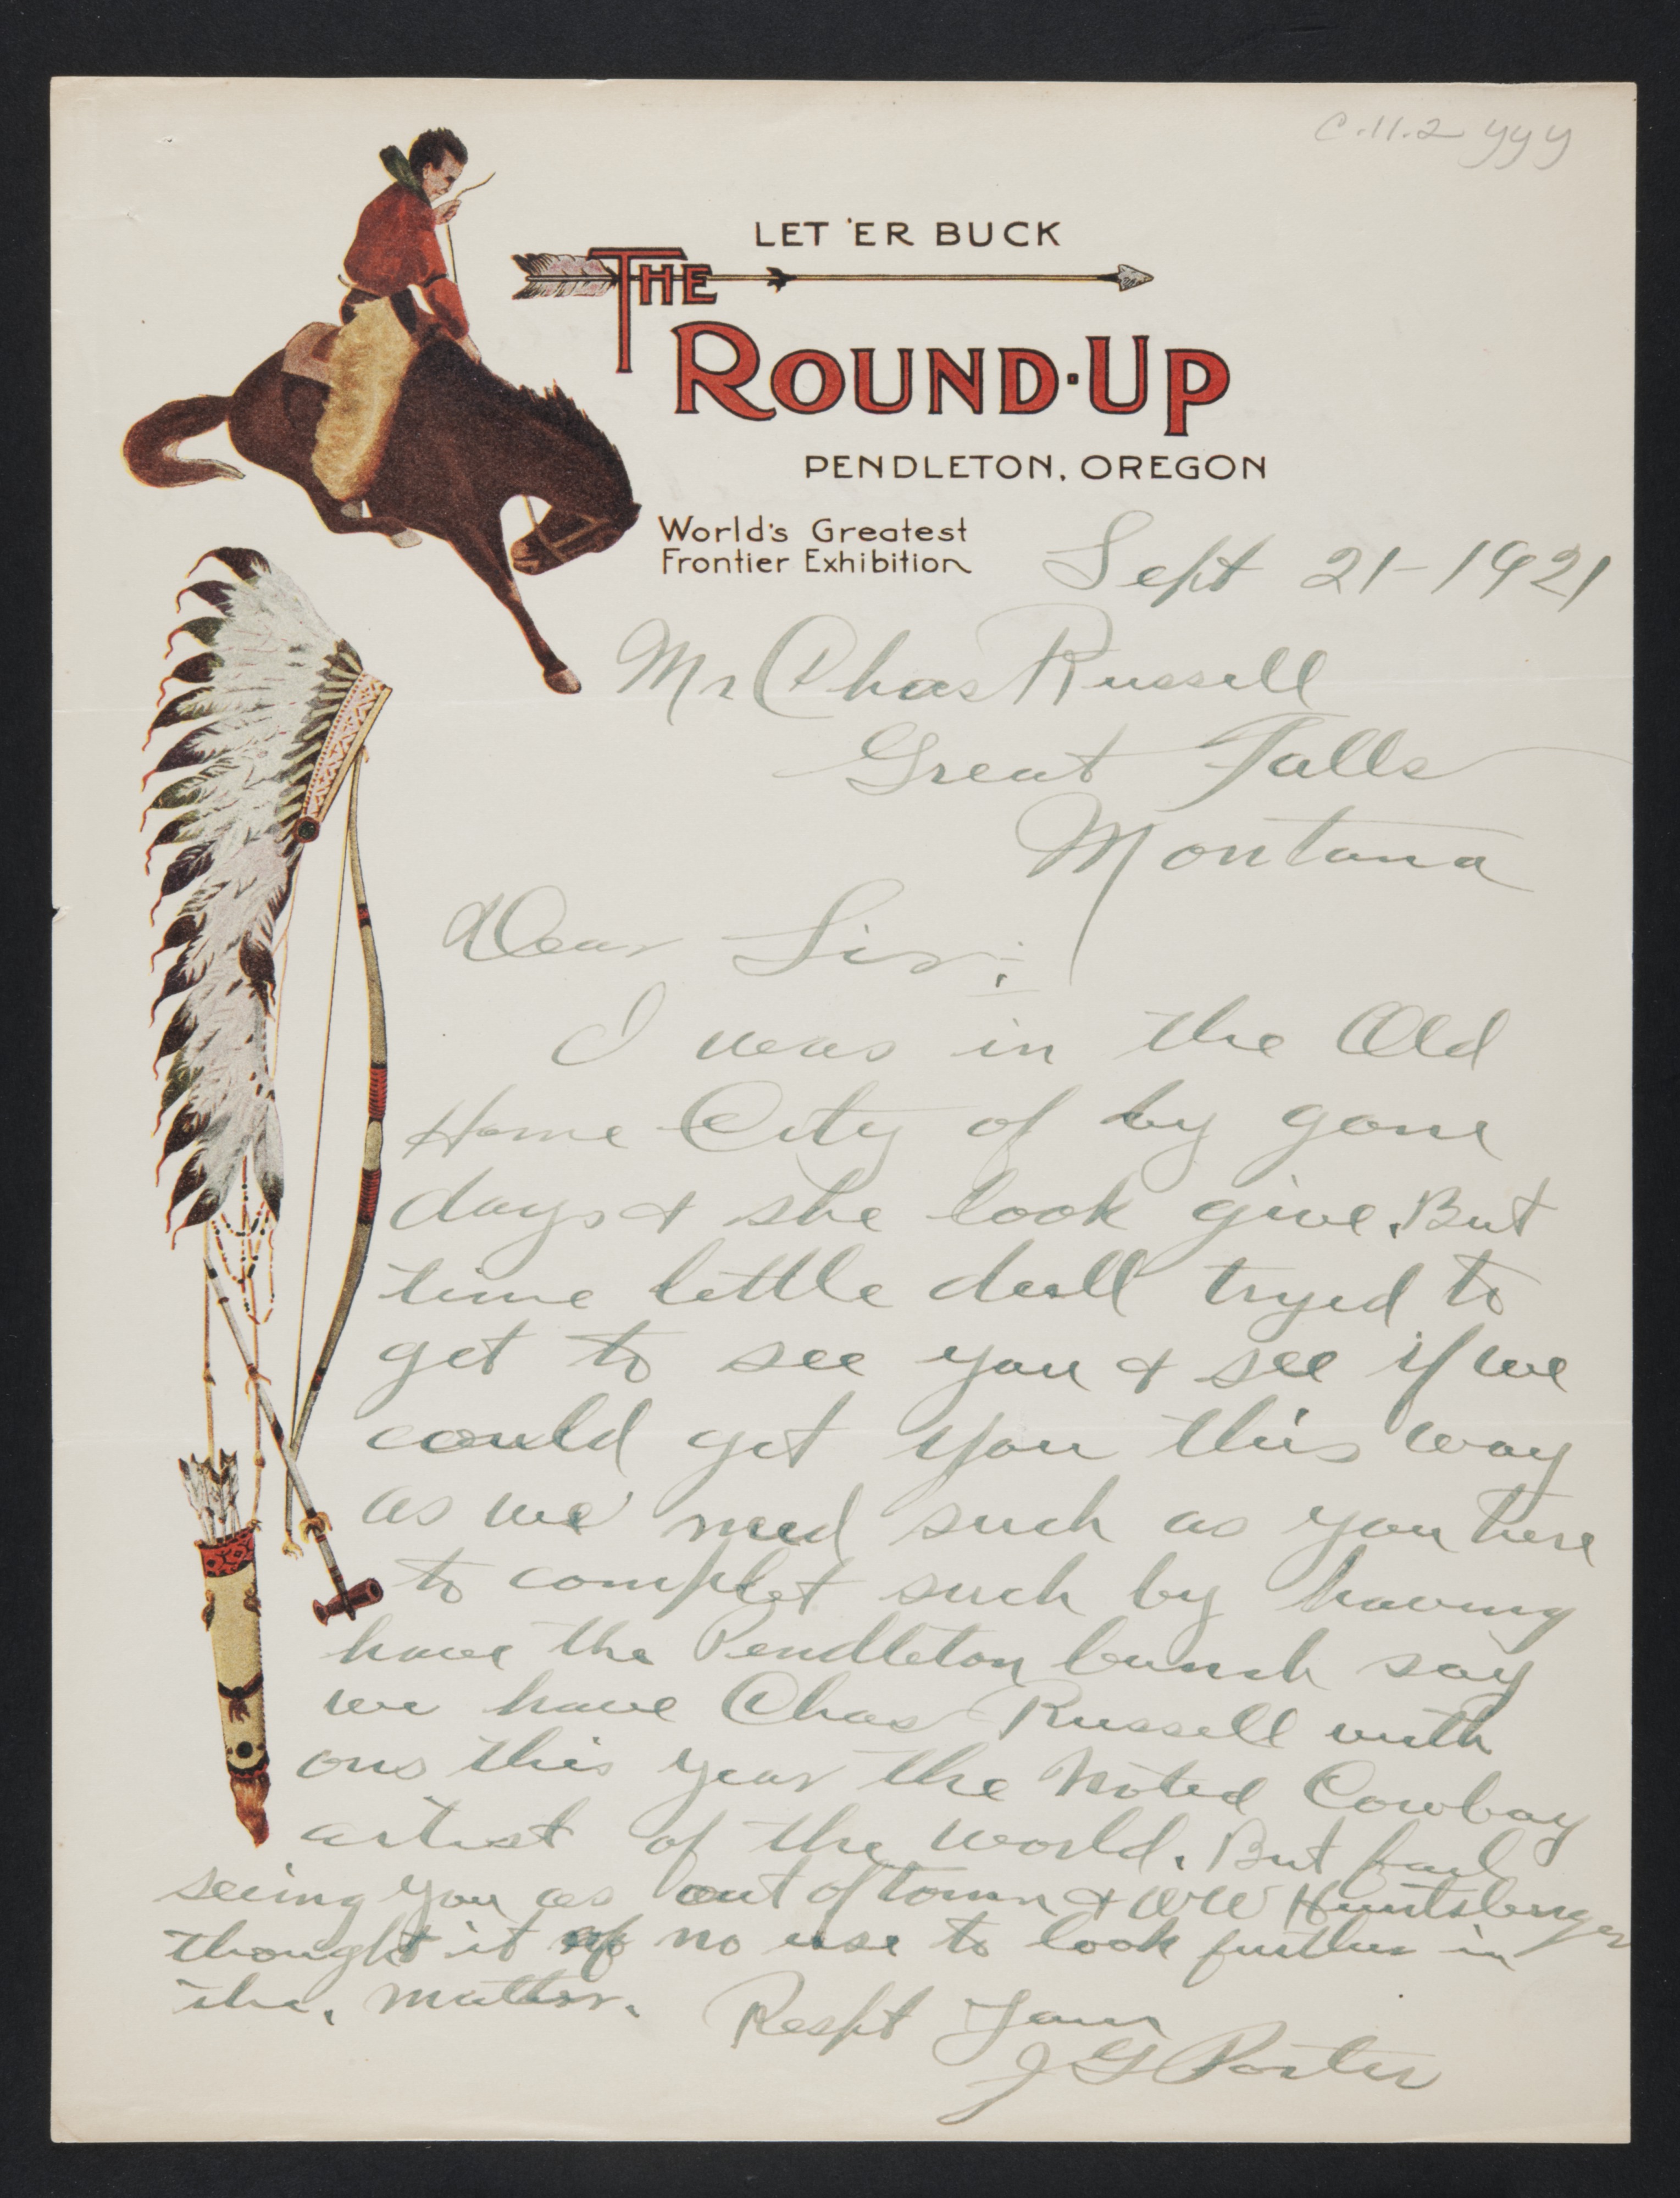 C.11.2 yyy
LET 'ER BUCK
THE
ROUND-UP
PENDLETON, OREGON
World's Greatest
Frontier Exhibition
Sept 21-1921
Mr Chas Russell
Great Falls
Montana
Dear Sir:
I was in the Old
Home City of by gone
days & she look give. But
time little dull tryed to
get to see you & see if we
could get you this way
as we need such as you here
to complet such by having
have the Pendleton bunch say
we have Chas Russell with
ous this year the Noted Cowboy
artist of the world. But fail
seeing you as out of town & WW Huntsberger
thought it of no use to look further in
the. matter.
Respt Yours
J G Porter